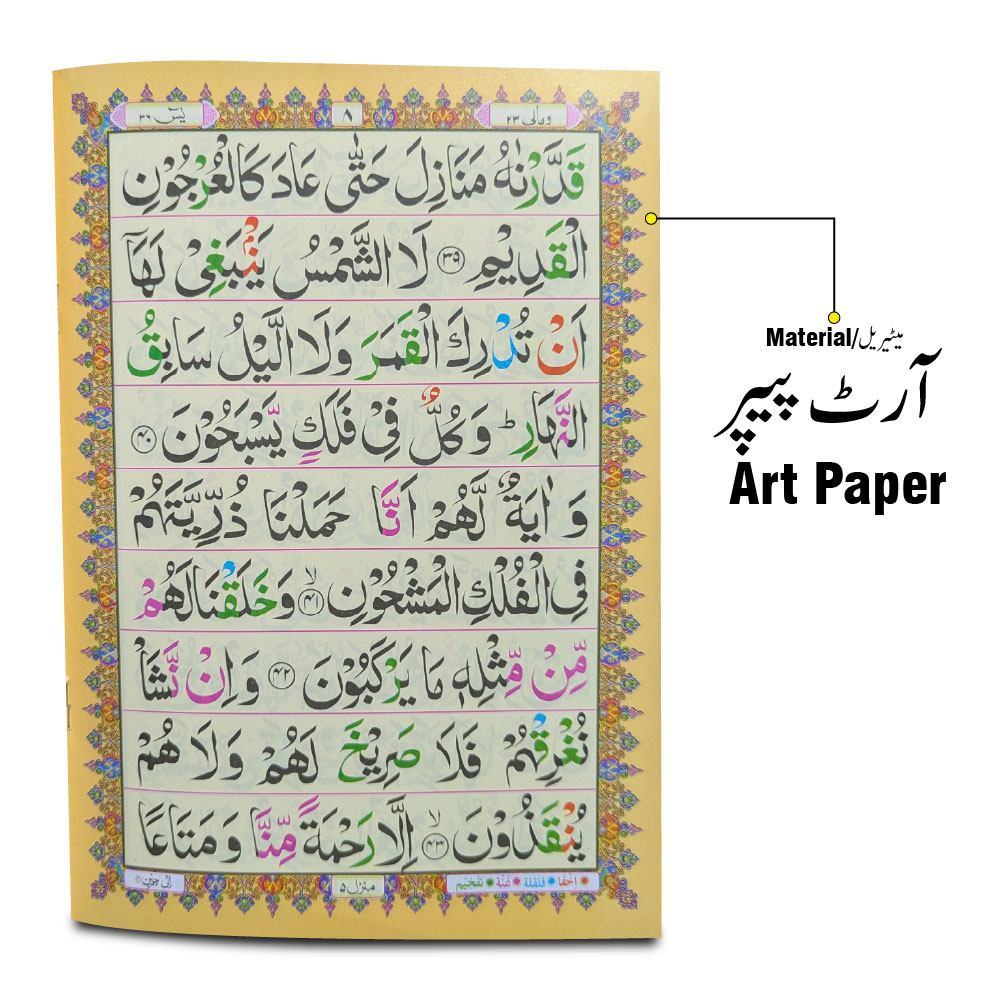 ومالی ۲۳ ۸ یٰسٓ ۳۶
قَدَّرْنٰهُ مَنَازِلَ حَتّٰى عَادَ كَالْعُرْجُوْنِ
الْقَدِيْمِ ۳۹ لَا الشَّمْسُ يَنْۢبَغِيْ لَهَاۤ
اَنْ تُدْرِكَ الْقَمَرَ وَلَا الَّيْلُ سَابِقُ
النَّهَارِ ؕ وَكُلٌّ فِيْ فَلَكٍ يَّسْبَحُوْنَ ۴۰
وَ اٰيَةٌ لَّهُمْ اَنَّا حَمَلْنَا ذُرِّيَّتَهُمْ
فِي الْفُلْكِ الْمَشْحُوْنِ ۙ ۴۱ وَخَلَقْنَا لَهُمْ
مِّنْ مِّثْلِهٖ مَا يَرْكَبُوْنَ ۴۲ وَاِنْ نَّشَاْ
نُغْرِقْهُمْ فَلَا صَرِيْخَ لَهُمْ وَلَا هُمْ
يُنْقَذُوْنَ ۙ ۴۳ اِلَّا رَحْمَةً مِّنَّا وَ مَتَاعًا
اخفا قلقلہ غنّہ تفخیم منزل ۵ اِلٰى حِيْنٍ
میٹیریل/Material
آرٹ پیپر
Art Paper